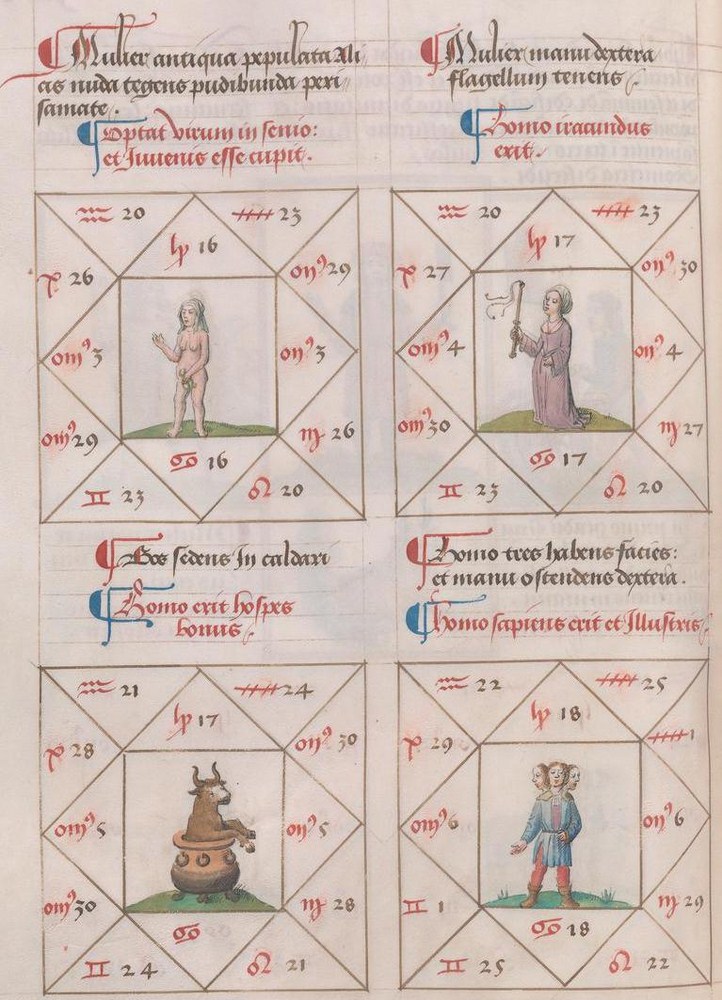 Mulier antiqua pepulata Ali
cas nuda tegens pudibunda peri
samate.
Optat virum in senio:
et Juvenis esse cupit.
♒ 20
23
16
26
29
3
3
29
♍ 26
♋ 16
♊ 23
♌ 20
Mulier manu dextera
flagellum tenens
Homo iracundus
erit.
♒ 20
23
17
27
30
4
4
30
♍ 27
♋ 17
♊ 23
♌ 20
Bos sedens In caldari
Homo erit hospes
bonus
♒ 21
24
17
28
30
5
5
30
♍ 28
♋
♊ 24
♌ 21
Homo tres habens facies:
et manu ostendens dextera.
homo sapiens erit et Illustris
♒ 22
25
18
29
1
6
6
♊ 1
♍ 29
♋ 18
♊ 25
♌ 22